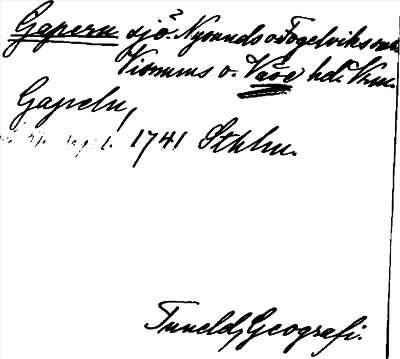 Gapern sjö. Nysunds o Fogelviks snr.
Visnums o. Väse hd. Vrm.
Gapeln,
1741 Sthlm.
Tuneld, Geografi.